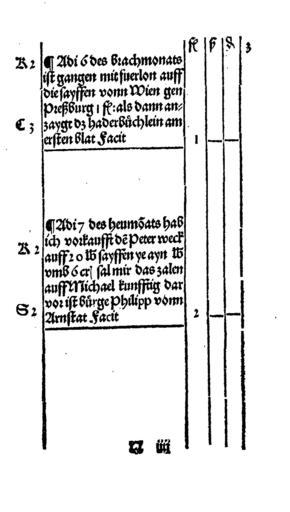 fl ß ₰ 3
K 2 ¶ Adi 6 des brachmonats
ist gangen mit fuerlon auff
die sayffen vonn Wien gen
Preßburg 1 fl: als dann an-
C 3 zaygt dz haderbůchlein am
ersten blat Facit 1 — —
¶ Adi 7 des heumõats hab
ich vorkaufft dē Peter weck
K 2 auff 20 lb sayffen ye ayn lb
vmb 6 cr sal mir das zalen
auff Michael kunfftig dar
vor ist bürge Philipp vonn
S 2 Arnstat Facit 2 — —
iiij